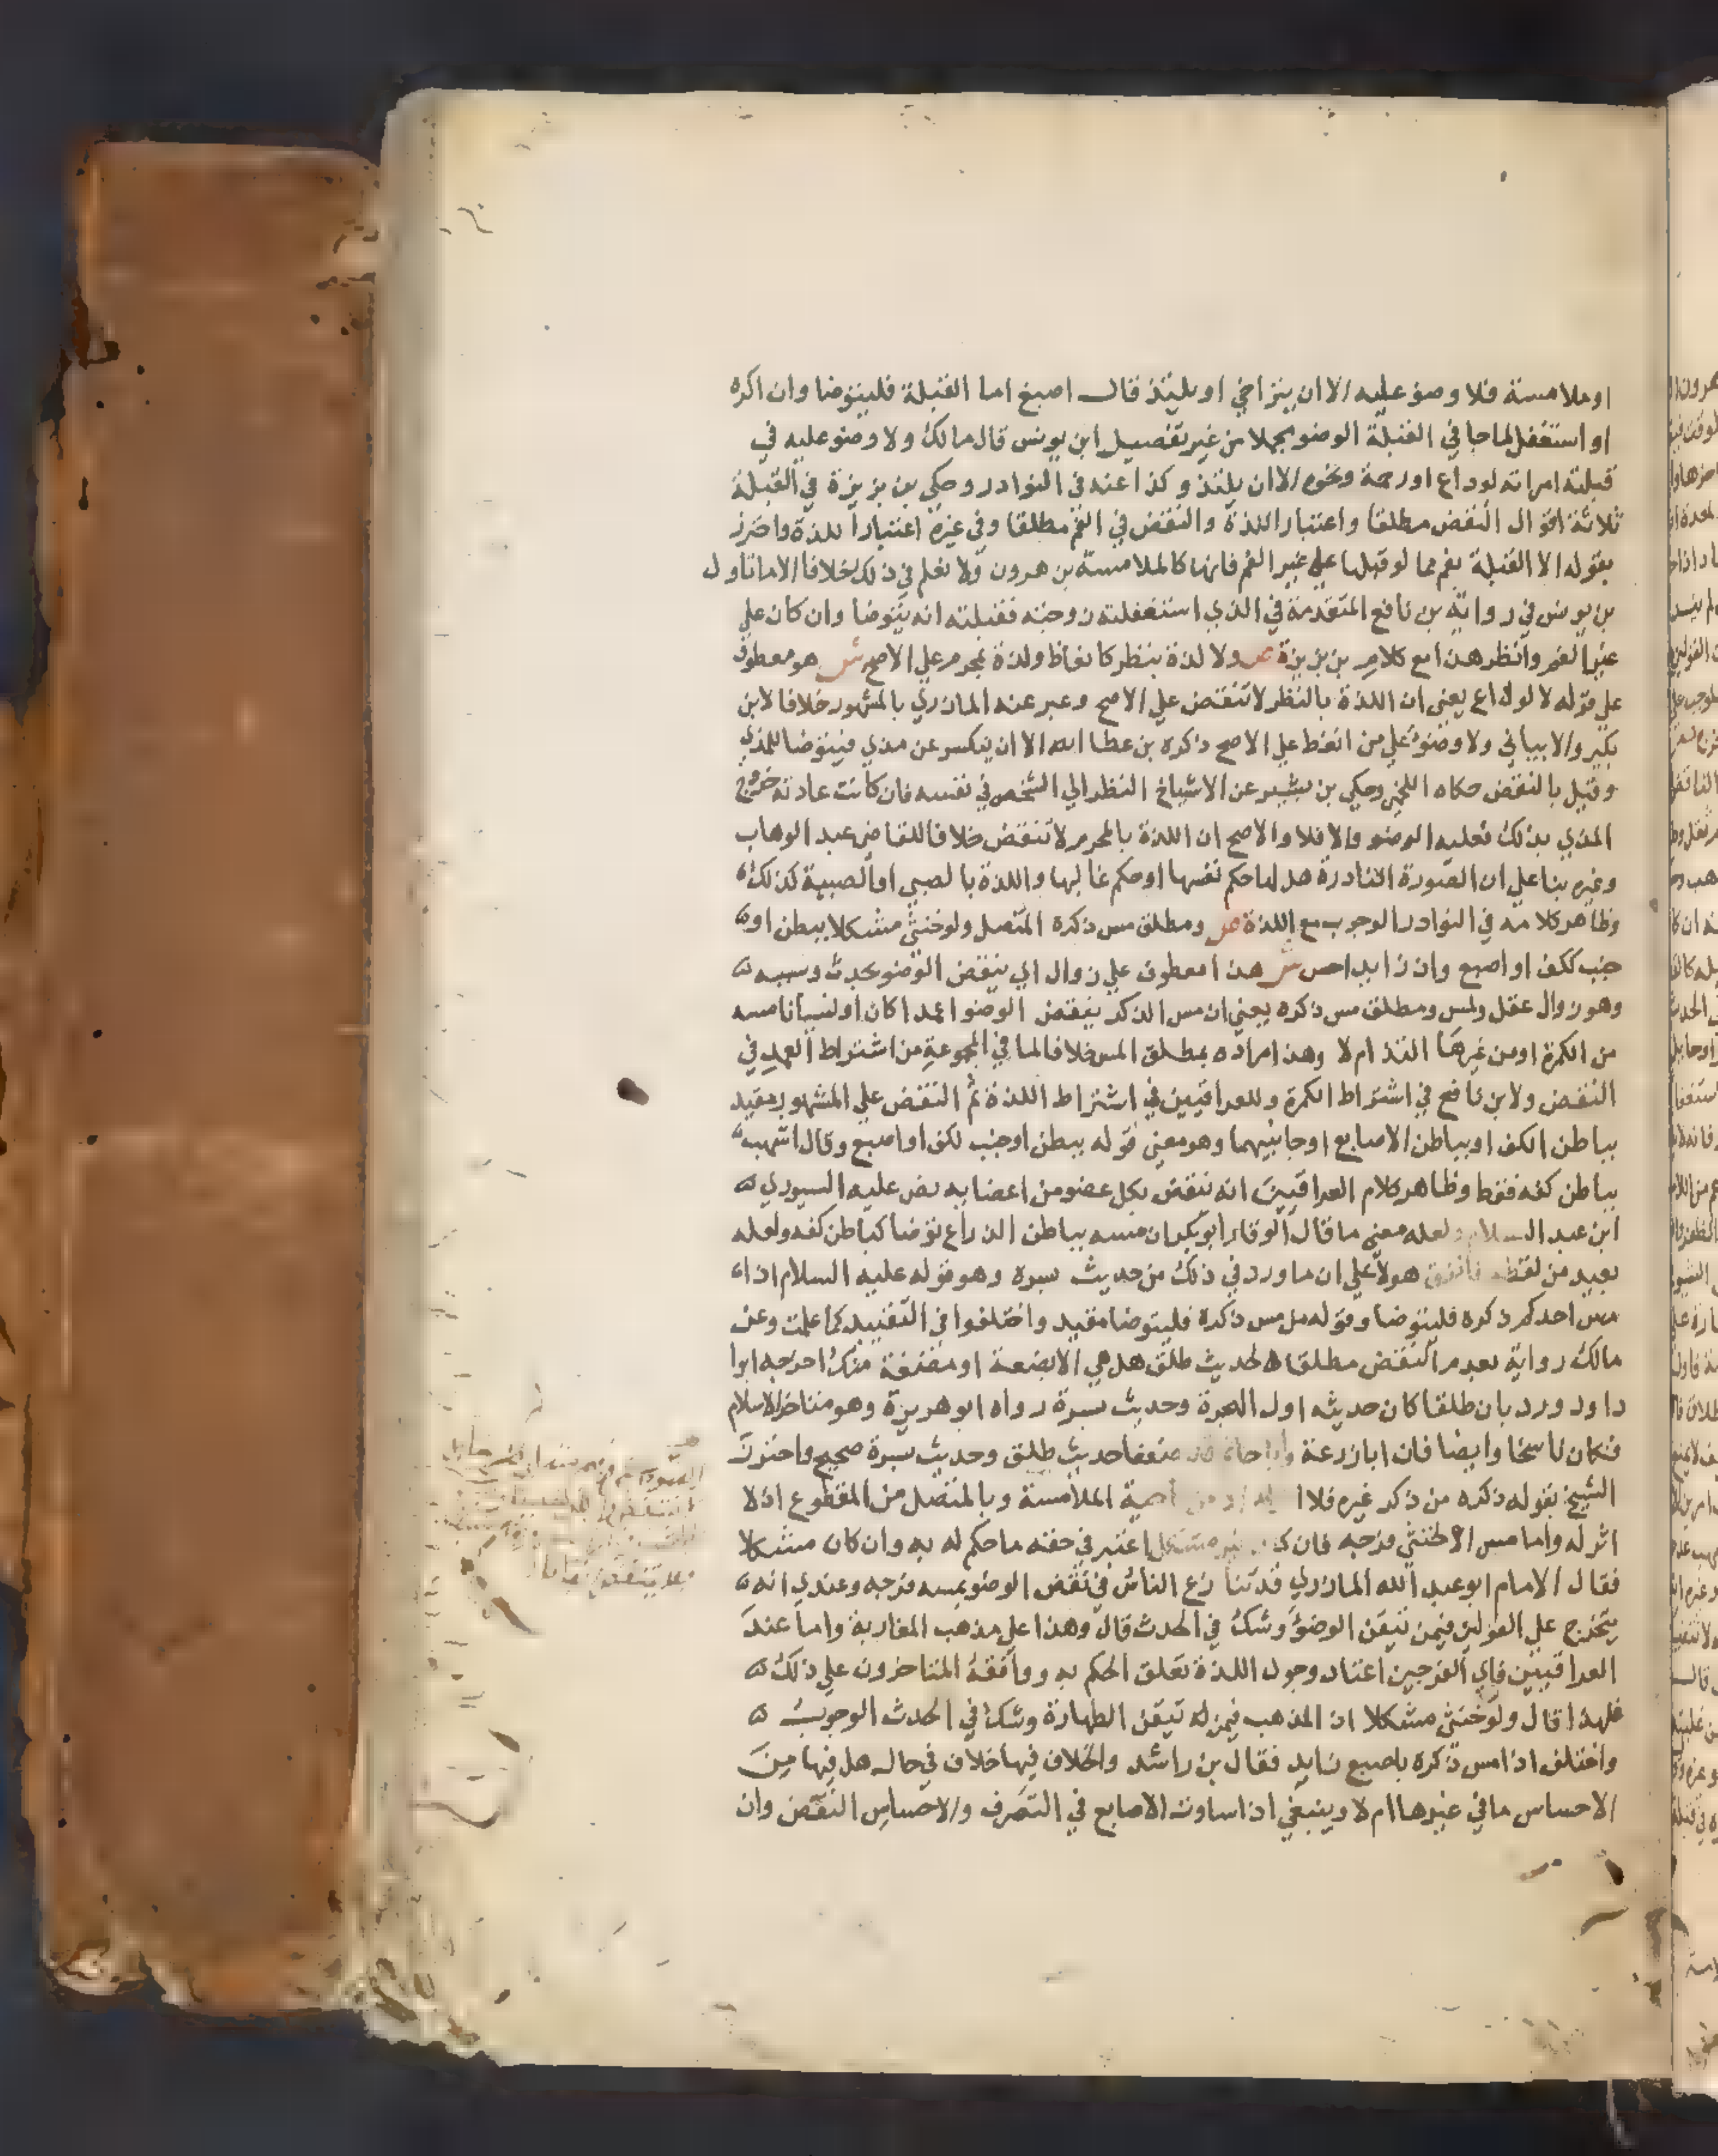 او ملامسة فلا وضو عليه الا ان يتراخي او يلتذ قال اصبغ اما القبلة فليتوضا وان اكره
او استغفل لما جا في القبلة الوضو مجملا من غير تفصيل ابن يونس قال مالك ولا وضو عليه في
قبلته امراته لوداع او رحمة ونحوه الا ان يلتذ وكذا عنه في النوادر وحكي بن بزيزة في القبلة
ثلاثة اقوال النقض مطلقا واعتبار اللذة والنقض في الفم مطلقا وفي غيره اعتبارا للذة واحترز
بقوله الا القبلة بفم مما لو قبلها علي غير الفم فانها كالملامسة بن هرون ولا نعلم في ذلك خلافا الا ما تاول
بن يونس في رواية بن نافع المتقدمة في الذي استغفلته زوجته فقبلته انه يتوضا وان كان علي
غير الفم وانظر هذا مع كلام بن بزيزة ص ولا لذة بنظر كانعاظ ولذة بمحرم علي الاصح ش هو معطوف
علي قوله لا لوداع يعني ان اللذة بالنظر لا تنقض علي الاصح وعبر عنه المازري بالمشهور خلافا لابن
بكير والابياني ولا وضوء علي من انعظ علي الاصح ذكره بن عطا الله الا ان ينكسر عن مذي فيتوضا للمذي
وقيل بالنقض حكاه اللخمي وحكي بن بشير عن الاشياخ النظر الي الشخص في نفسه فان كانت عادته خروج
المذي بذلك فعليه الوضو والا فلا والاصح ان اللذة بالمحرم لا تنقض خلافا للقاضي عبد الوهاب
وغيره بنا علي ان الصورة النادرة هل لها حكم نفسها او حكم غالبها واللذة بالصبي او الصبية كذلك
وظاهر كلامه في النوادر الوجوب مع اللذة ص ومطلق مس ذكره المتصل ولو خنثي مشكلا ببطن او
جنب لكف او اصبع وان زايدا حس ش هذا معطوف علي زوال اي ينقض الوضو بحدث وسببه
وهو زوال عقل ولمس ومطلق مس ذكره يعني ان مس الذكر ينقض الوضو اعمدا كان او نسيانا مسه
من الكمرة او من غيرها التذ ام لا وهذا مراده بمطلق المس خلافا لما في المجموعة من اشتراط العمد في
النقض ولابن نافع في اشتراط الكمرة وللعراقيين في اشتراط اللذة ثم النقض علي المشهور مقيد
بباطن الكف او بباطن الاصابع او جانبيهما وهو معني قوله ببطن او جنب لكف او اصبع وقال اشهب
بباطن كفه فقط وظاهر كلام العراقيين انه ينقض بكل عضو من اعضايه نص عليه السيوري
ابن عبد السلام ولعله معني ما قال الوقار ابو بكر ان مسه بباطن الذراع توضا كباطن كفه ولعله
بعيد من لفظه فاتفق هولا علي ان ما ورد في ذلك من حديث بسرة وهو قوله عليه السلام اذا
مس احدكم ذكره فليتوضا وقوله من مس ذكره فليتوضا مقيد واختلفوا في التقييد كما علمت وعن
مالك رواية بعدم النقض مطلقا لحديث طلق هل هي الا بضعة او مضغة منك اخرجه ابوا
داود ورد بان طلقا كان حديثه اول الهجرة وحديث بسرة رواه ابو هريرة وهو متاخر الاسلام
فكان ناسخا وايضا فان ابا زرعة وابا حاتم قد ضعفا حديث طلق وحديث بسرة صحيح واحترز
الشيخ بقوله ذكره من ذكر غيره فلا الملامسة وبالمتصل من المقطوع اذ لا
اثر له واما مس الخنثي فرجه فان كان غير مشكل اعتبر في حقه ما حكم له به وان كان مشكلا
فقال الامام ابو عبد الله المازري قد تنازع الناس في نقض الوضو بمسه فرجه وعندي انه
يتخرج علي القولين فيمن تيقن الوضؤ وشك في الحدث قال وهذا علي مذهب المغاربة واما عند
العراقيين فاي الفرجين اعتاد وجود اللذة تعلق الحكم به ووافقه المتاخرون علي ذلك
فلهذا قال ولو خنثي مشكلا اذ المذهب فيمن له تيقن الطهارة وشك في الحدث الوجوب
واختلف اذا مس ذكره باصبع زايد فقال بن راشد والخلاف فيها خلاف في حال هل فيها من
الاحساس ما في غيرها ام لا وينبغي اذا ساوت الاصابع في التصرف والاحساس النقض وان